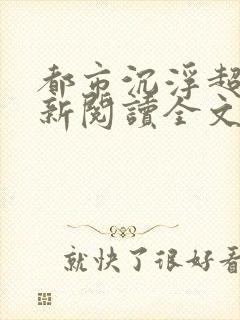 都市沉浮超
新閱讀全文
就快了很好看